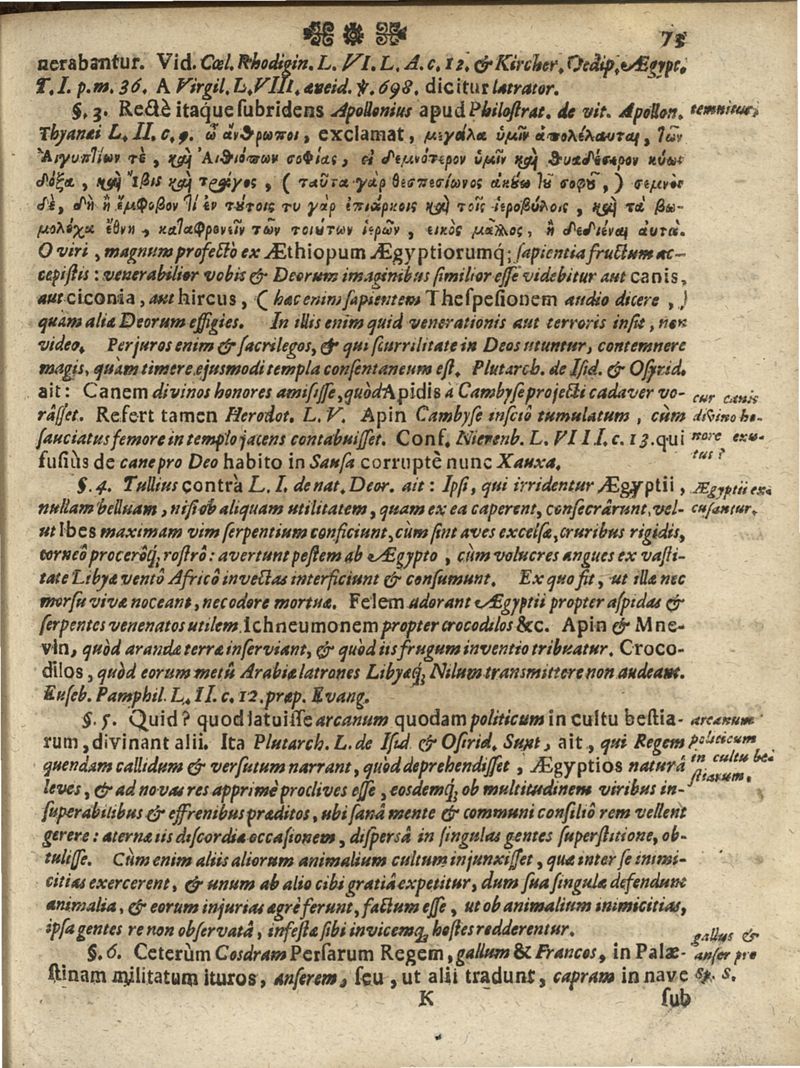 73
nerabantur. Vid. Cœl. Rhodigin. L. VI. L. A. c. 12. & Kircher. Oedip. Ægypt.
T. I. p. m. 36. A Virgil. L. VIII. æneid. ℣. 698. dicitur latrator.
§. 3. Rectè itaque subridens Apollonius apud Philostrat. de vit. Apollon.
temnitur.
Thyanæi L. II. c. 9. ὦ ἄνθρωποι, exclamat, μεγάλα ὑμῖν ἀπολέλαυται, τῶν
Αἰγυπτίων τὲ, καὶ Αἰθιόπων σοφίας, εἰ σεμνότερον ὑμῖν καὶ θυαδέστερον κύων
δόξα, καὶ Ἴβις καὶ τράγος, (ταῦτα γὰρ θεσπεσίωνος ἀκούω τοῦ σοφοῦ,) σεμνὸν
δὲ, δὴ ἢ ἔμφοβον τί ἐν τούτοις τυ γὰρ ἐπιόρκοις καὶ τοῖς ἱεροβύλοις, καὶ τὰ βω-
μολόχα ἔθνη, καταφρονεῖν τῶν τοιούτων ἱερῶν, εἰκὸς μᾶλλος, ἢ δεδιέναι αυτά.
O viri, magnum profectò ex Æthiopum Ægyptiorumq; sapientia fructum ac-
cepistis: venerabilior vobis & Deorum imaginibus similior esse videbitur aut canis,
aut ciconia, aut hircus, (hæc enim sapientem Thespesionem audio dicere,)
quàm alia Deorum effigies. In illis enim quid venerationis aut terroris insit, non
video. Perjuros enim & sacrilegos, & qui scurrilitate in Deos utuntur, contemnere
magis, quàm timere ejusmodi templa consentaneum est. Plutarch. de Isid. & Osyrid.
ait: Canem divinos honores amisisse, quòd Apidis à Cambyse projecti cadaver vo-
râsset. Refert tamen Herodot. L. V. Apin Cambyse insciô tumulatum, cùm
sauciatus femore in templo jacens contabuisset. Conf. Nieremb. L. VIII. c. 13. qui
fusiùs de cane pro Deo habito in Sausa corruptè nunc Xauxa.
cur canis
divino ho-
nore exu-
tus?
§. 4. Tullius contrà L. I. de nat. Deor. ait: Ipsi, qui irridentur Ægyptii,
nullam belluam, nisi ob aliquam utilitatem, quam ex ea caperent, consecrârunt, vel-
ut Ibes maximam vim serpentium conficiunt, cùm sint aves excelsæ, cruribus rigidis,
corneô procerôq; rostrô: avertunt pestem ab Ægypto, cùm volucres angues ex vasti-
tate Libyæ ventô Africô invectas interficiunt & consumunt. Ex quo fit, ut illæ nec
morsu vivæ noceant, nec odore mortuæ. Felem adorant Ægyptii propter aspidas &
serpentes venenatos utilem. Ichneumonem propter crocodilos &c. Apin & Mne-
vin, quòd arandæ terræ inserviant, & quòd iis frugum inventio tribuatur. Croco-
dilos, quòd eorum metû Arabiæ latrones Libyæq; Nilum transmittere non audeant.
Euseb. Pamphil. L. II. c. 12. præp. Evang.
Ægyptii ex-
cusantur.
§. 5. Quid? quod latuisse arcanum quodam politicum in cultu bestia-
rum, divinant alii. Ita Plutarch. L. de Isid. & Osirid. Sunt, ait, qui Regem
quendam callidum & versutum narrant, quòd deprehendisset, Ægyptios naturâ
leves, & ad novas res apprimè proclives esse, eosdemq; ob multitudinem viribus in-
superabilibus & effrenibus præditos, ubi sanâ mente & communi consiliô rem vellent
gerere: æternæ iis discordiæ occasionem, dispersâ in singulas gentes superstitione, ob-
tulisse. Cùm enim aliis aliorum animalium cultum injunxisset, quæ inter se inimi-
citias exercerent, & unum ab alio cibi gratiâ expetitur, dum sua singulæ defendunt
animalia, & eorum injurias ægrè ferunt, factum esse, ut ob animalium inimicitias,
ipsæ gentes re non observatâ, infestæ sibi invicemq; hostes redderentur.
arcanum
politicum
in cultu be-
stiarum.
§. 6. Ceterùm Cosdram Persarum Regem, gallum & Francos, in Palæ-
stinam militatum ituros, anserem, seu, ut alii tradunt, capram in nave
gallus &
anser pro
Sp. S.
K
sub